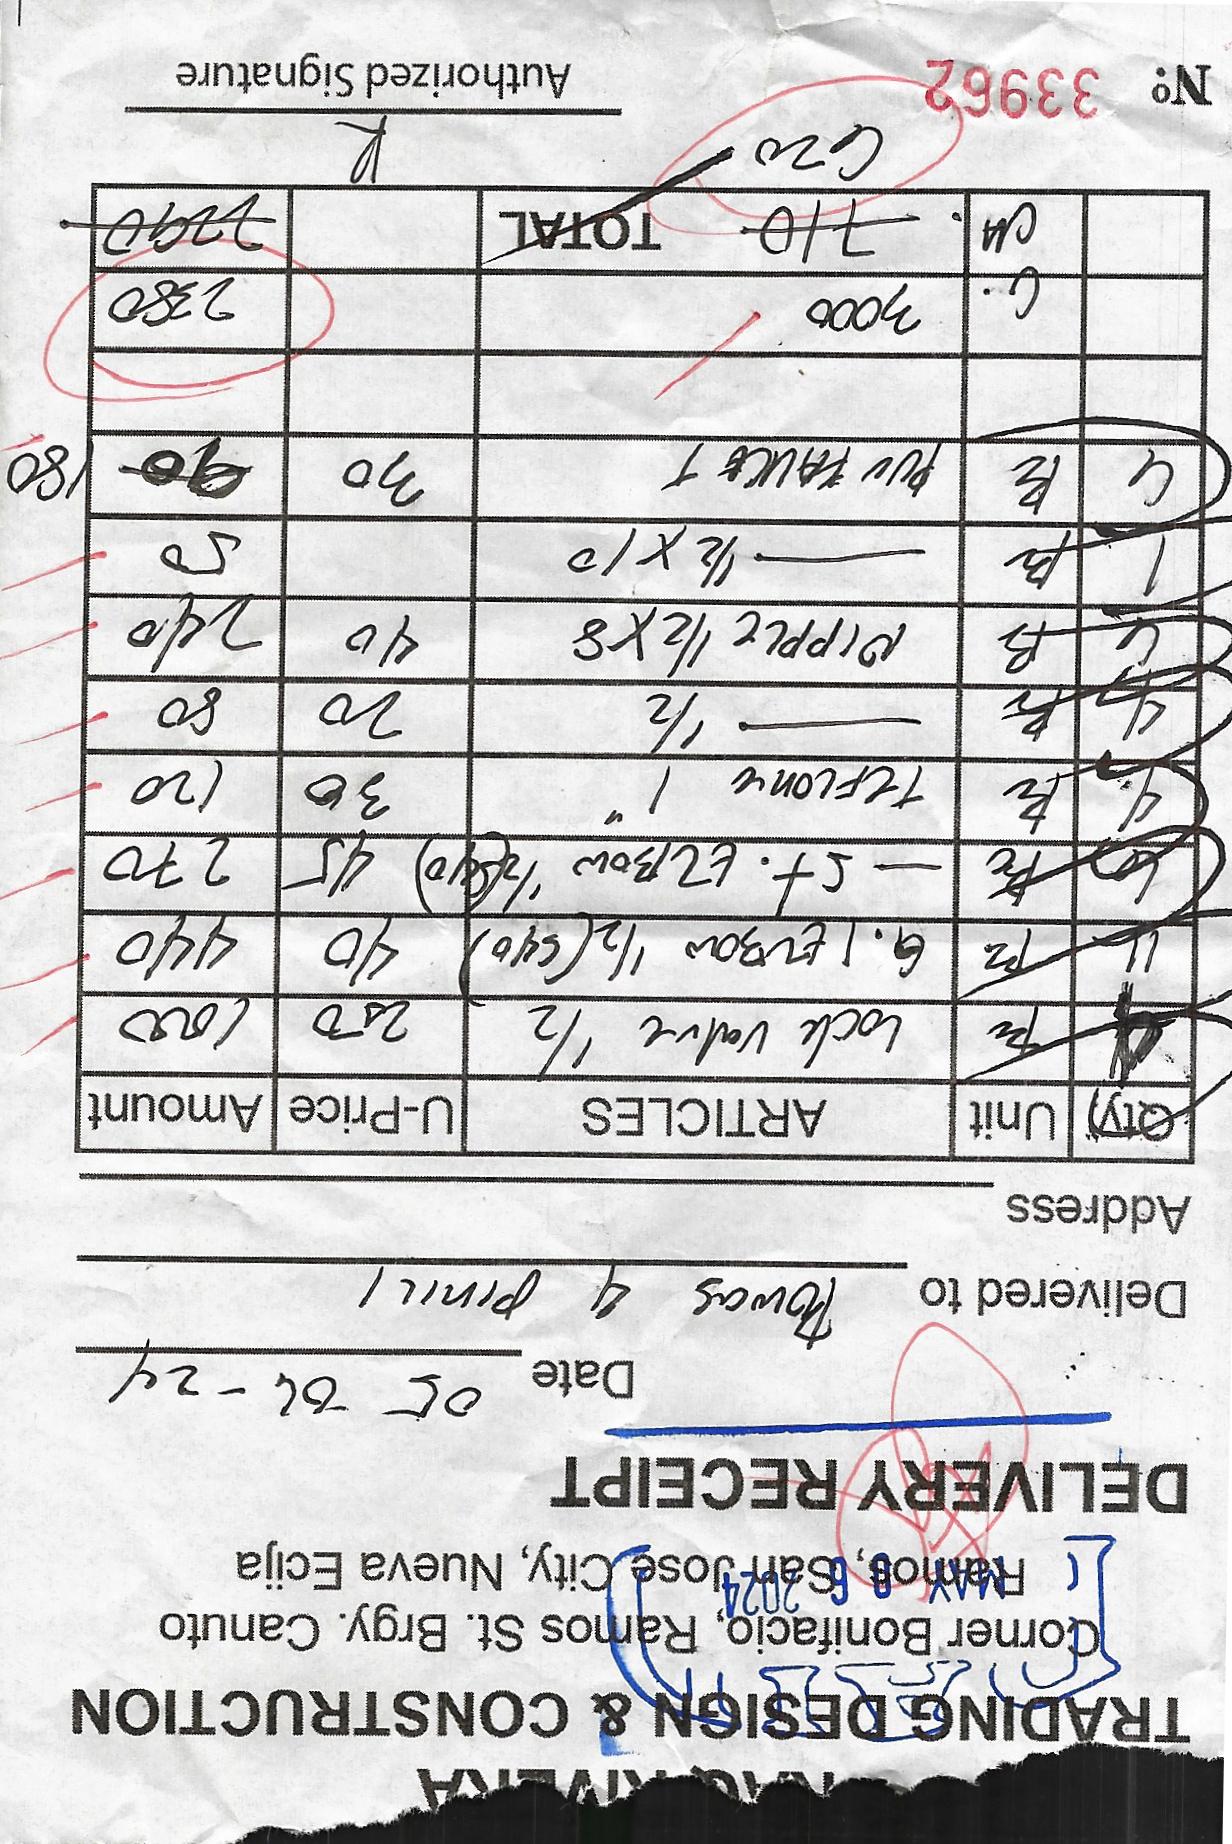 RIVERA
TRADING DESIGN & CONSTRUCTION
Corner Bonifacio, Ramos St. Brgy. Canuto
Ramos, San Jose City, Nueva Ecija
PAID
MAY 06 2024
DELIVERY RECEIPT
Date 05 06 - 24
Delivered to Powas 4 PINILI
Address
Qty Unit ARTICLES U-Price Amount
4 Pc Lock valve 1/2 250 1000
11 Pc G.I ELBOW 1/2 (S40) 40 440
6 Pc — St. ELBOW 1/2 (S40) 45 270
4 Pc TEFLONE 1" 30 120
4 Pc — 1/2 20 80
6 Pc NIPPLE 1/2 X 8 40 240
1 Pc — 1/2 X 10 50
6 Pc PVC FAUCET 30 90 180
C. 3000 2380
CH. 710 TOTAL 2290
620
R
Nº 33962
Authorized Signature